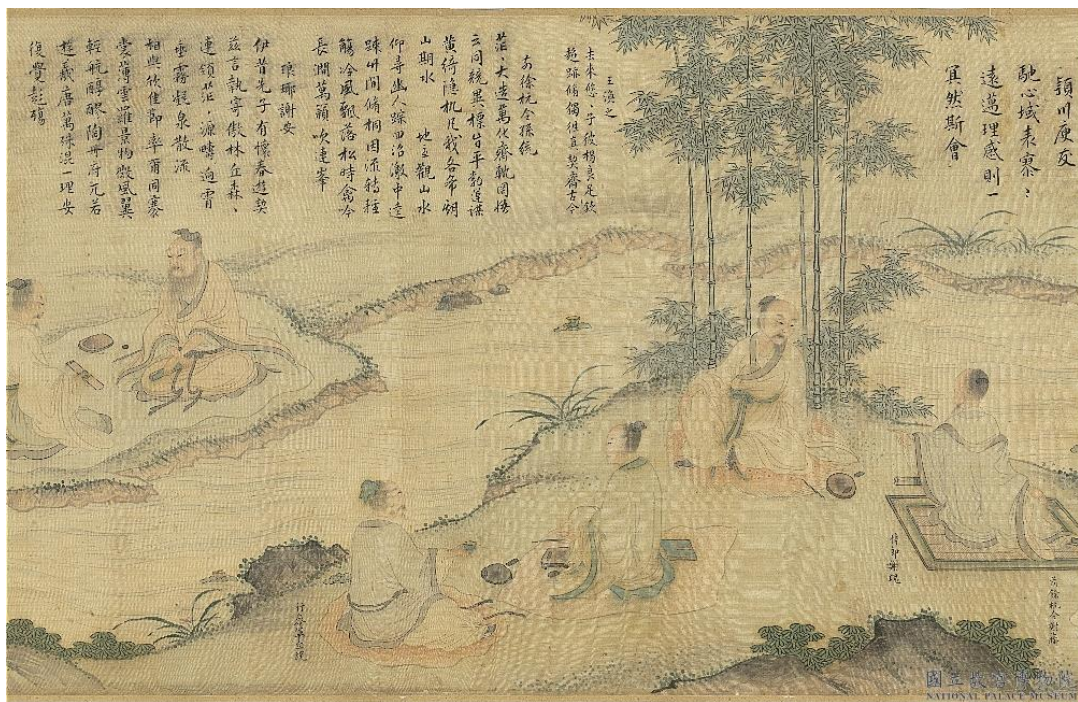 潁川庾友
馳心域表寥〻
遠邁理感則一
冥然斯會
王渙之
去來悠〻子披褐良足欽
超跡脩獨往真契齊古今
前餘杭令孫統
茫〻大造萬化齊軌罔悟
玄同競異標旨平勃運謀
黃綺隱机凡我各希期
山期水 地主觀山水
仰尋幽人蹤回沼激中逵
踈竹間脩桐因流轉輕
觴冷風飄落松時禽吟
長澗萬籟吹連峯
琅瑯謝安
伊昔先子有懷春遊契
茲言執寄傲林丘森〻
連嶺茫〻源疇逈霄
垂霧凝泉散流
相與欣佳節率爾同褰
裳薄雲羅景物微風翼
輕航醇醪陶丹府兀若
遊羲唐萬殊混一理安
復覺彭殤
侍郎謝瑰
前餘杭令謝藤
國立故宮博物院
NATIONAL PALACE MUSEUM